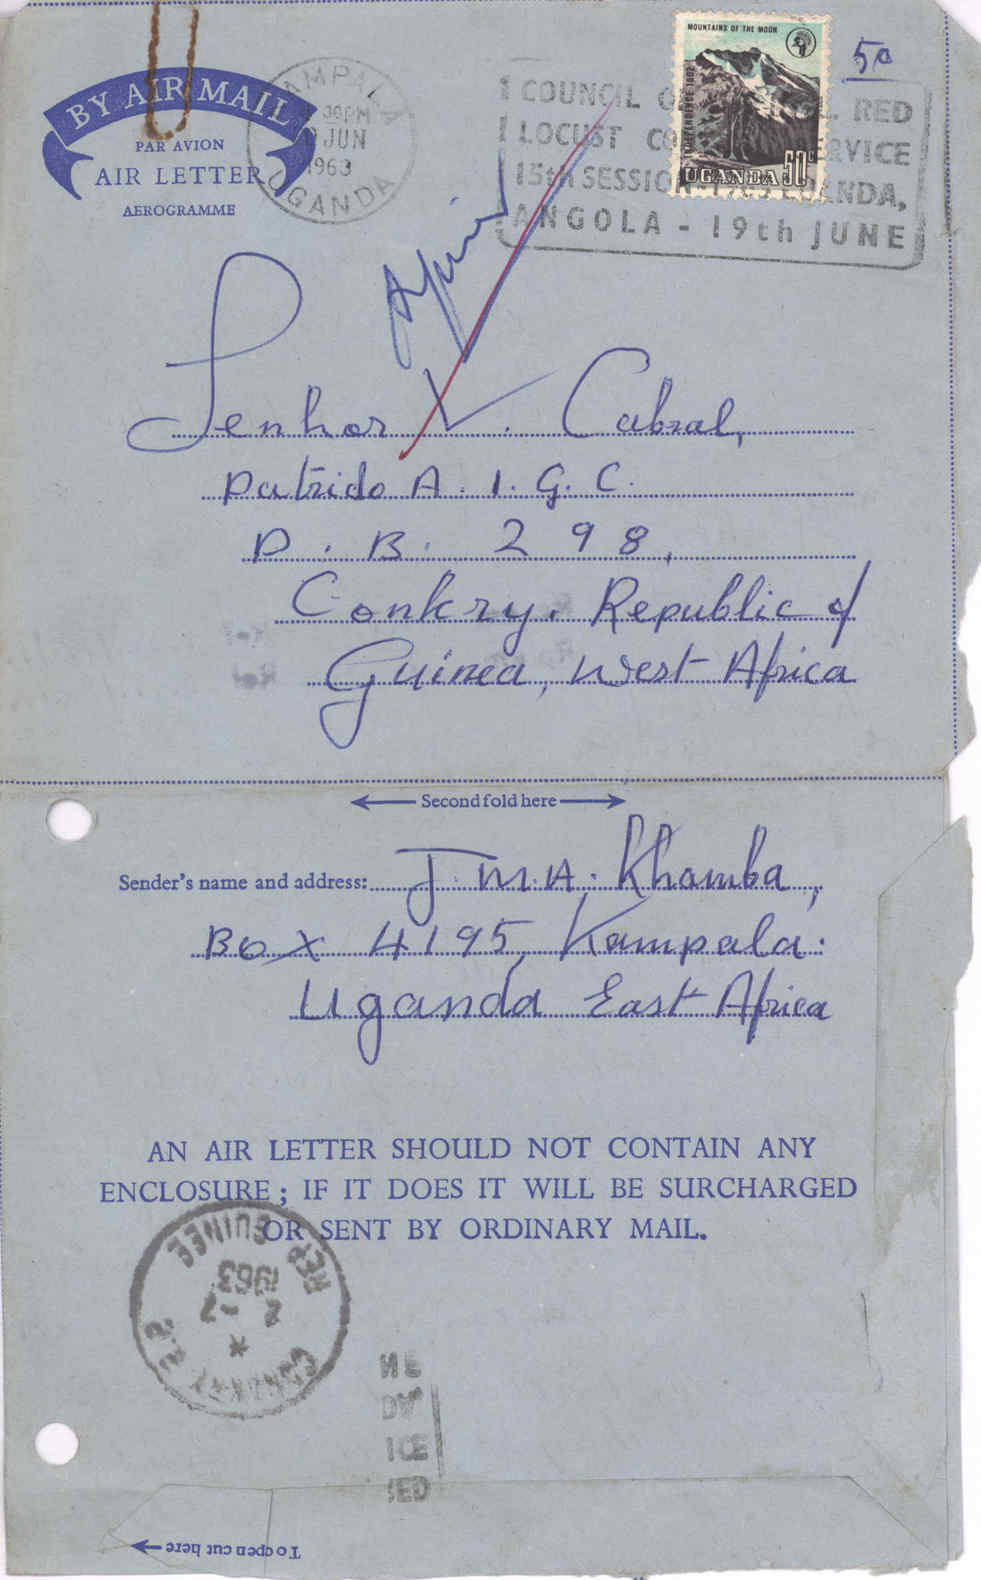 BY AIR MAIL
PAR AVION
AIR LETTER
AEROGRAMME
KAMPALA
30PM
JUN
1963
UGANDA
MOUNTAINS OF THE MOON
INDEPENDENCE 1962
UGANDA 50c
50
COUNCIL RED
LOCUST SERVICE
15th SESSION
ANGOLA - 19th JUNE
Senhor V. Cabral,
Patrido A.I.G.C.
P.B. 298,
Conkry. Republic of
Guinea, West Africa
Second fold here
Sender's name and address: J.M.A. Khamba,
Box 4195, Kampala.
Uganda East Africa
AN AIR LETTER SHOULD NOT CONTAIN ANY
ENCLOSURE; IF IT DOES IT WILL BE SURCHARGED
OR SENT BY ORDINARY MAIL.
REP GUINEE
1963
2 -7
CONAKRY R.P.
ICE
To open cut here